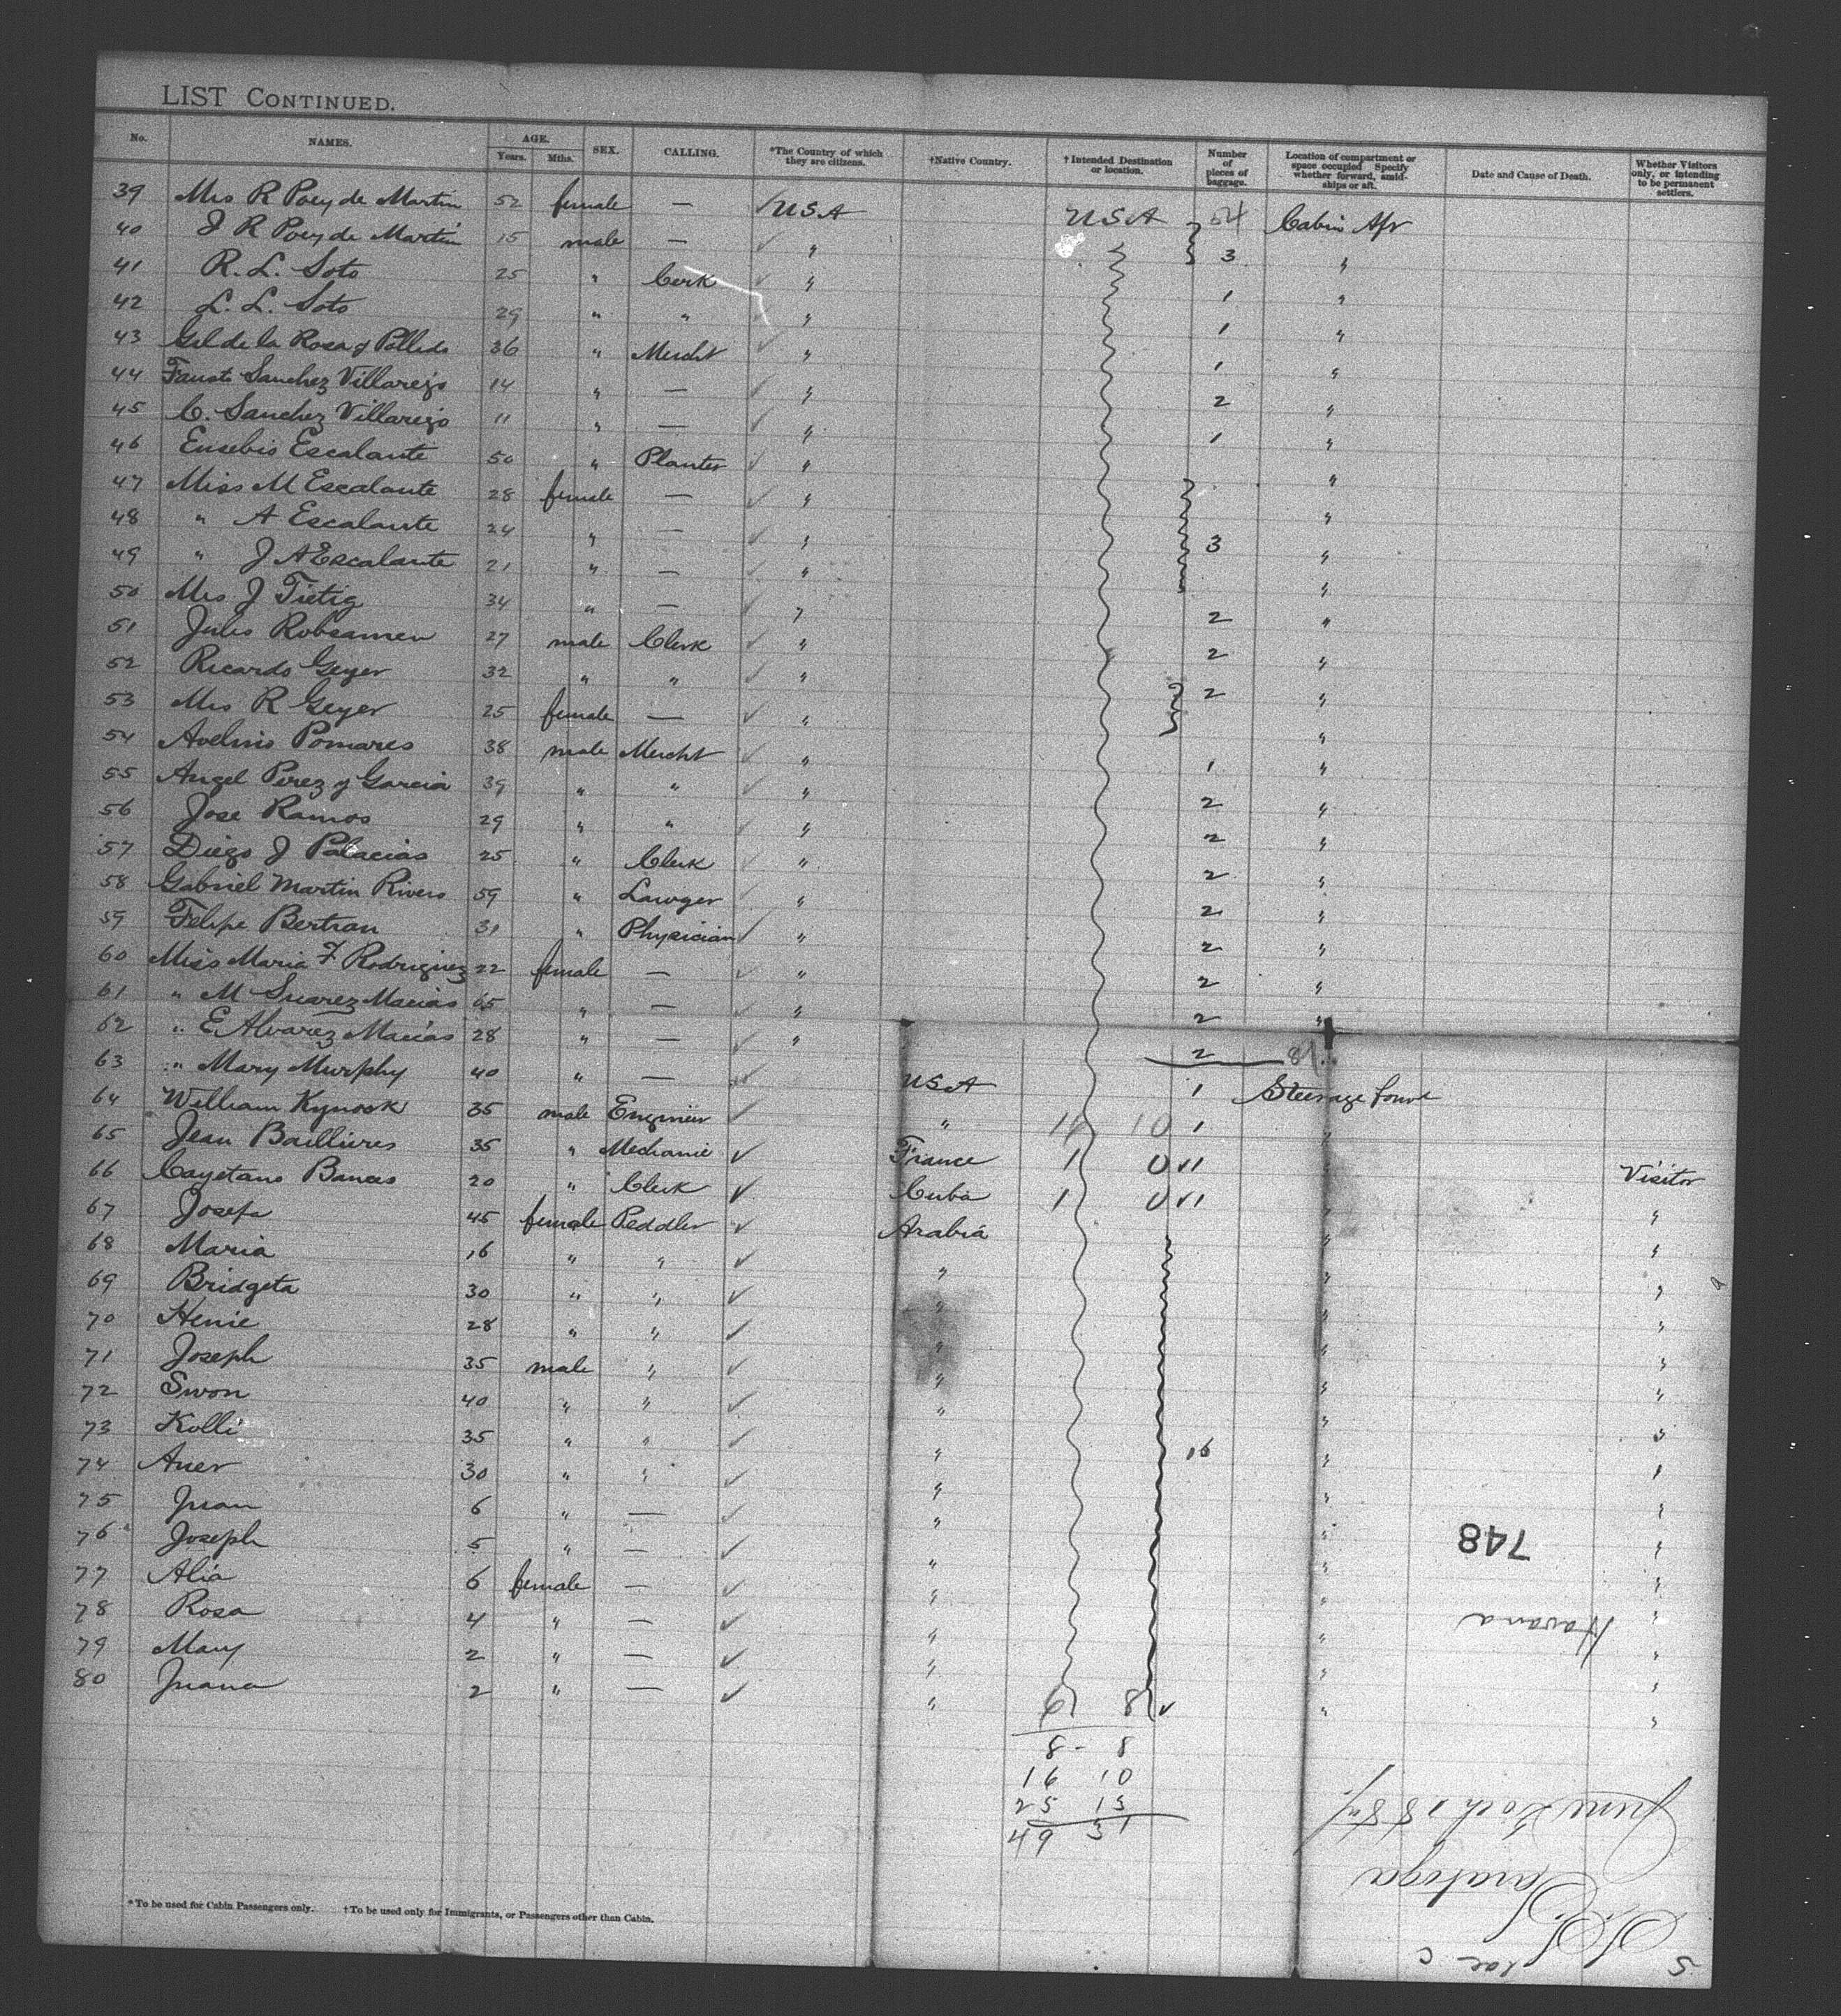 LIST CONTINUED.
No. NAMES. AGE. Years. Mths. SEX. CALLING. *The Country of which they are citizens. †Native Country. †Intended Destination or location. Number of pieces of baggage. Location of compartment or space occupied Specify whether forward, amidships or aft. Date and Cause of Death. Whether Visitors only, or intending to be permanent settlers.
39 Mrs R Poey de Martin 52 female — ✓ USA USA 54 Cabin Aft
40 J R Poey de Martin 15 male — ✓ " 3 "
41 R. L. Soto 25 " Clerk ✓ " 1 "
42 L. L. Soto 29 " " ✓ " 1 "
43 Gil de la Rosa y Polledo 36 " Mercht ✓ " 1 "
44 Fausto Sanchez Villarejo 14 " — ✓ " 2 "
45 C. Sanchez Villarejo 11 " — ✓ " 1 "
46 Eusebio Escalante 50 " Planter ✓ " "
47 Miss M Escalante 28 female — ✓ " "
48 " A Escalante 24 " — ✓ " 3 "
49 " J A Escalante 21 " — ✓ " "
50 Mrs J Tietig 34 " — ✓ " 2 "
51 Jules Robsamen 27 male Clerk ✓ " 2 "
52 Ricardo Geyer 32 " " ✓ " 2 "
53 Mrs R Geyer 25 female — ✓ " "
54 Avelino Pomares 38 male Mercht ✓ " 1 "
55 Angel Perez y Garcia 39 " " ✓ " 2 "
56 Jose Ramos 29 " " ✓ " 2 "
57 Diego J Palacias 25 " Clerk ✓ " 2 "
58 Gabriel Martin Rivero 59 " Lawyer ✓ " 2 "
59 Felipe Bertran 31 " Physician ✓ " 2 "
60 Miss Maria F Rodriguez 22 female — ✓ " 2 "
61 " M Suarez Macias 65 " — ✓ " 2 "
62 " E. Alvarez Macias 28 " — ✓ " 2 81.
63 " Mary Murphy 40 " — ✓ USA 1 Steerage forw
64 William Kynock 35 male Engineer ✓ " 16 10 1 "
65 Jean Baillieres 35 " Mechanic ✓ France 1 0 ✓ 1 " Visitor
66 Cayetano Bances 20 " Clerk ✓ Cuba 1 0 ✓ 1 " "
67 Josefa 45 female Peddler ✓ Arabia " "
68 Maria 16 " " ✓ " " "
69 Bridgeta 30 " " ✓ " " "
70 Henie 28 " " ✓ " " "
71 Joseph 35 male " ✓ " " "
72 Swon 40 " " ✓ " " "
73 Kolli 35 " " ✓ " 16 " "
74 Aner 30 " " ✓ " " "
75 Juan 6 " — ✓ " " "
76 Joseph 5 " — ✓ " " "
77 Alia 6 female — ✓ " " "
78 Rosa 4 " — ✓ " " "
79 Mary 2 " — ✓ " " "
80 Juana 2 " — ✓ " 6 8 ✓ " "
8 - 8
16 10
25 13
49 31
*To be used for Cabin Passengers only. †To be used only for Immigrants, or Passengers other than Cabin.
S.S. Saratoga
June 20th 1884
Havana
748